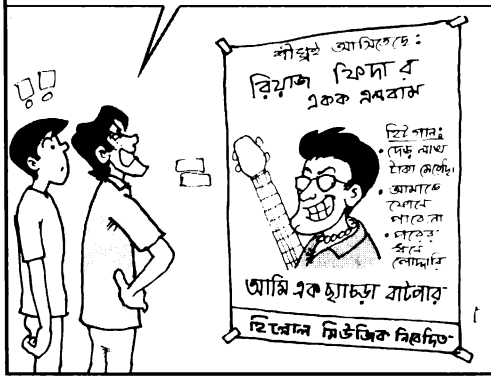 শীঘ্রই আসিতেছে:
রিয়াজ ফিদা র
একক এলবাম
হিট গান:
• দেড় লাখ
টাকা মেরেছি।
• আমাকে
ফোনে
পাবে না
• পরের
ধনে
পোদ্দারি
আমি এক ছ্যাচড়া বাটপার
হিল্লোল মিউজিক নিবেদিত